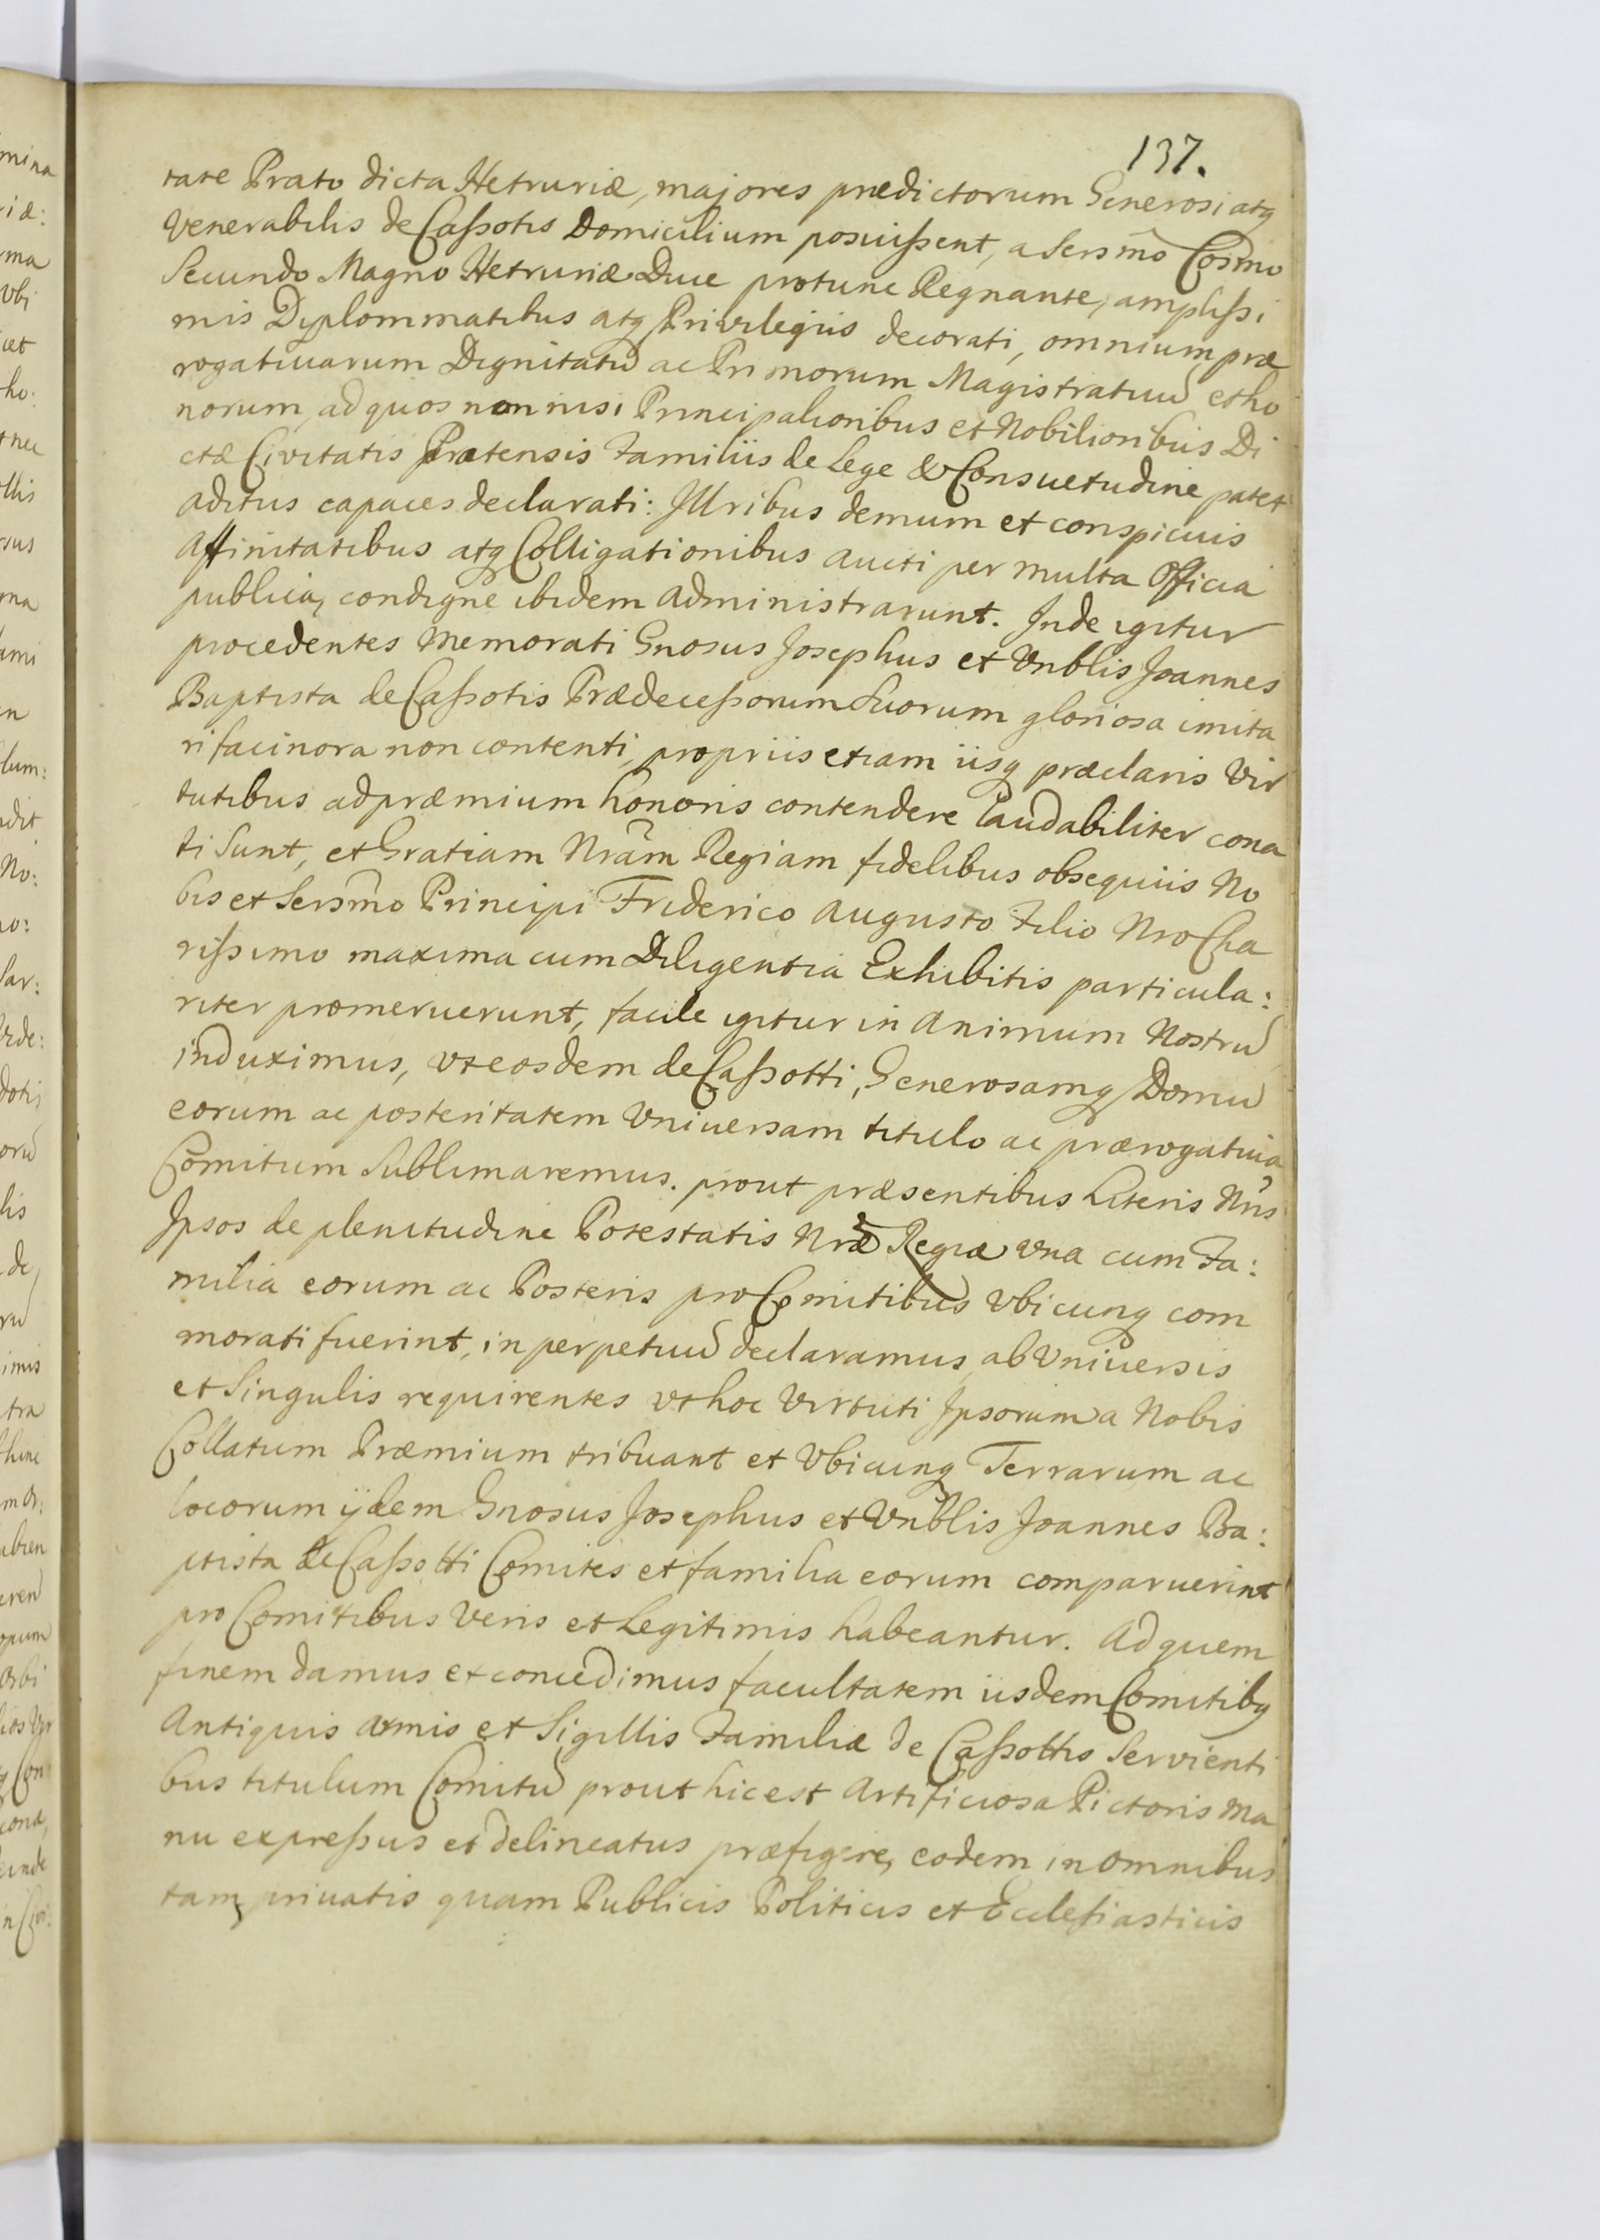 137.
tate Prato dicta Hetruriæ, majores prædictorum Generosi atq
Venerabilis de Caßotis Domicilium posuißent, a Sersm̃o Cosmo
Secundo Magno Hetruriæ Duce protunc Regnante, amplißi
mis Dyplommatibus atq Privilegiis decorati, omnium, præ
rogativarum Dignitatũ ac Primorum Magistratuũ et ho
norum, ad quos non nisi Principalioribus et Nobilioribus Di
ctæ Civitatis Pratensis Familiis de lege & Consuetudine patet
aditus capaces declarati: Jllribus demum et conspicuis
Affinitatibus atq Colligationibus aucti per multa Officia
publica, condigne ibidem administrarunt. Jnde igitur
procedentes memorati Gnosus Josephus et Vnblis Joannes
Baptista de Caßotis Prædeceßorum Suorum gloriosa imita
ri facinora non contenti, propriis etiam iisq præclaris Vir
tutibus ad præmium honoris contendere laudabiliter cona
ti Sunt, et Gratiam Nram̃ Regiam fidelibus obsequiis No
bis et Sersm̃o Principi Friderico Augusto Filio Nro Cha
rißimo maxima cum Diligentia Exhibitis particula:
riter promeruerunt, facile igitur in Animum Nostrũ
induximus, vt eosdem de Caßotti, Generosamq Domũ
eorum ac posteritatem Vniuersam titulo ac prærogatiua
Comitum Sublimaremus. prout præsentibus Literis Nris̃
Jpsos de plenitudine Potestatis Nræ̃ Regiæ vna cum Fa:
milia eorum ac Posteris pro Comitibus Vbicunq com
morati fuerint, in perpetuũ declaramus, ab Vniuersis
et Singulis requirentes vt hoc Virtuti Jpsorum a Nobis
Collatum Præmium tribuant et Vbicunq Terrarum ac
locorum ijdem Gnosus Josephus et Vnblis Joannes Ba:
ptista de Caßotti Comites et familia eorum comparuerint
pro Comitibus Veris et Legitimis habeantur. Ad quem
finem damus et concedimus facultatem iisdem Comitibq
Antiquis armis et Sigillis Familiæ de Caßottis Servienti
bus titulum Comitũ prout hic est Artificiosa Pictoris ma
nu expreßus et delineatus præfigere, eodem in omnibus
tam privatis quam Publicis Politicis et Ecclesiasticis